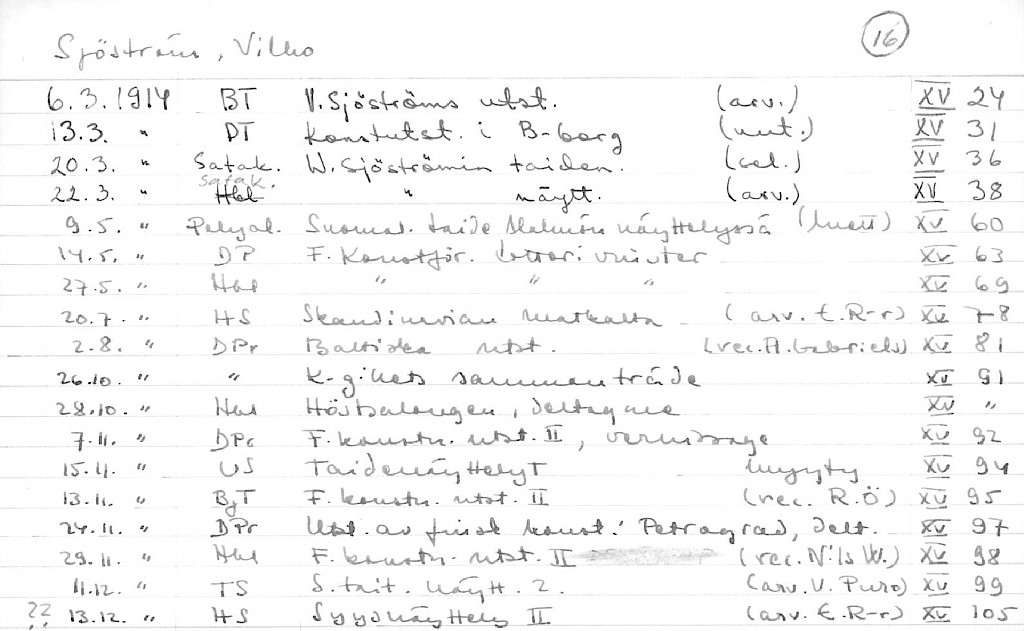 Sjöström, Vilho 16
6.3.1914 BT V. Sjöströms utst. (arv.) XV 24
13.3. " DT Konstutst. i B-borg (uut.) XV 31
20.3. " Satak. W. Sjöströmin taiden. (sel.) XV 36
Satak.
22.3. " Hbl " näytt. (arv.) XV 38
9.5. " Suomal. taide Malmön näyttelyssä XV 60
14.5. " DP F. Konstför. lotteri vinster XV 63
27.5. " Hbl " " " XV 69
20.7. " HS Skandinavian matkalta (arv. E.R-r) XV 78
2.8. " DPr Baltiska utst. (rec. A. Gabriels) XV 81
26.10. " " K-gillets sammanträde XV 91
28.10. " Hbl Höstsalongen, deltagare XV "
7.11. " DPr F. konstn. utst. II, vernissage XV 92
15.11. " US Taidenäyttelyt myyty XV 94
13.11. " BjT F. konstn. utst. II (rec. R.Ö) XV 95
24.11. " DPr Utst. av finsk konst i Petrograd, delt. XV 97
29.11. " Hbl F. konstn. utst. II (rec. Nils W.) XV 98
11.12. " TS S. tait. näytt. 2. (arv. V. Puro) XV 99
?? 13.12. " HS Syysnäyttely II (arv. E.R-r) XV 105